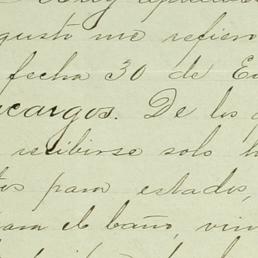 Muy apreciado
gusto me refiero
fecha 30 de En
ncargos. De los q
recibirse solo h
tos para estados,
para el baño, vin